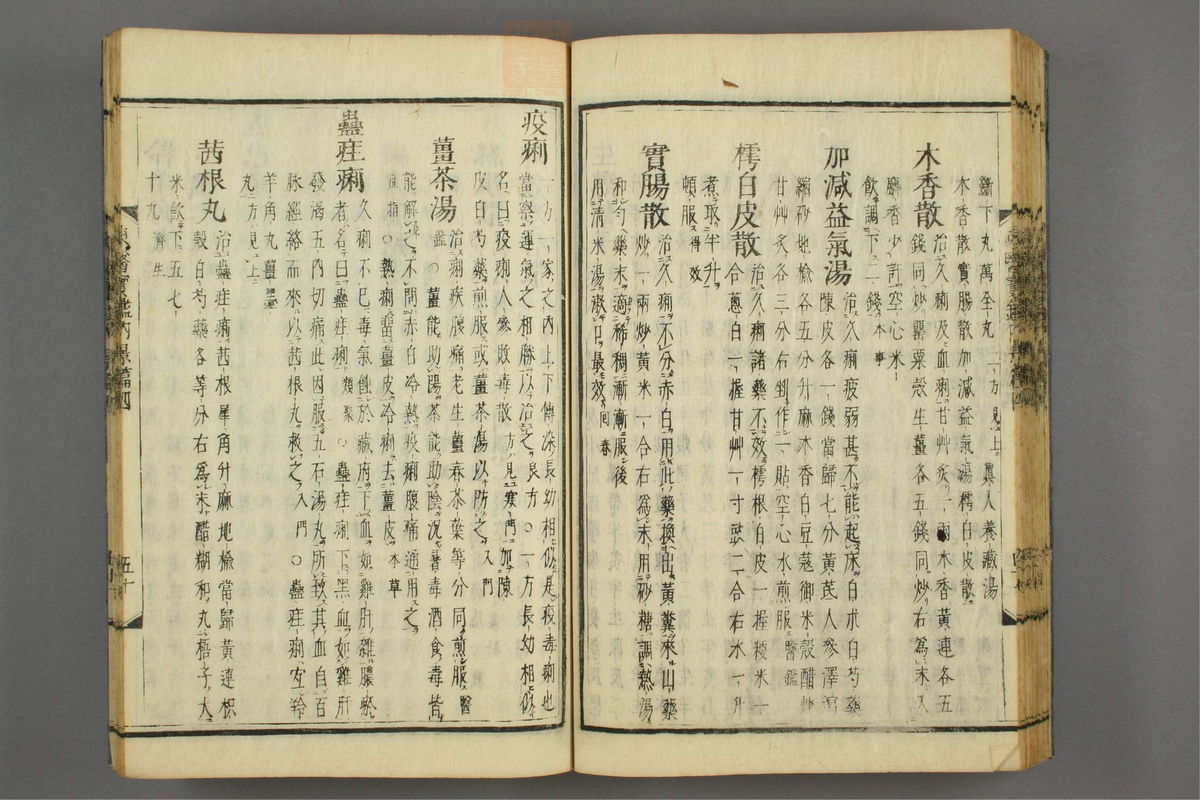 斷下丸萬全丸二方見上眞人養藏湯
木香散實腸散加減益氣湯樗白皮散
木香散治久痢及血痢甘艸炙一兩木香黃連各五
錢同炒罌粟殼生薑各五錢同炒右爲末入
麝香少許空心米
飮調下二錢本事
加減益氣湯治久痢疲弱甚不能起床白朮白芍藥
陳皮各一錢當歸七分黃芪人參澤瀉
縮砂地楡各五分升麻木香白豆蔻御米殼醋炒
甘艸炙各三分右剉作一貼空心水煎服醫鑑
樗白皮散治久痢諸藥不效樗根白皮一握粳米一
合蔥白一握甘艸一寸豉二合右水一升
煮取半升
頓服得效
實腸散治久痢不分赤白用此藥換出黃糞來山藥
炒一兩炒黃米一合右爲末用砂糖調熱湯
和勻藥末適稀稠漸漸服後
用清米湯漱口最效回春
疫痢一方一家之內上下傳染長幼相似是疫毒痢也
當察運氣之相勝以治之良方○一方長幼相似
名曰疫痢人參敗毒散方見寒門加陳
皮白芍藥煎服或薑茶湯以防之入門
薑茶湯治痢疾腹痛老生薑春茶葉等分同煎服醫
鑑○薑能助陽茶能助陰況暑毒酒食毒皆
能解之不問赤白冷熱疫痢腹痛通用之
直指○熱痢留薑皮冷痢去薑皮本草
蠱疰痢久痢不已毒氣蝕於藏府下血如雞肝雜膿瘀
者名曰蠱疰痢類聚○蠱疰痢下黑血如雞肝
發渴五內切痛此因服五石湯丸所致其血自百
脉經絡而來以茜根丸救之入門○蠱疰痢宜羚
羊角丸薑墨
丸二方見上
茜根丸治蠱疰痢茜根犀角升麻地楡當歸黃連枳
殼白芍藥各等分右爲末醋糊和丸梧子大
米飮下五七
十丸濟生